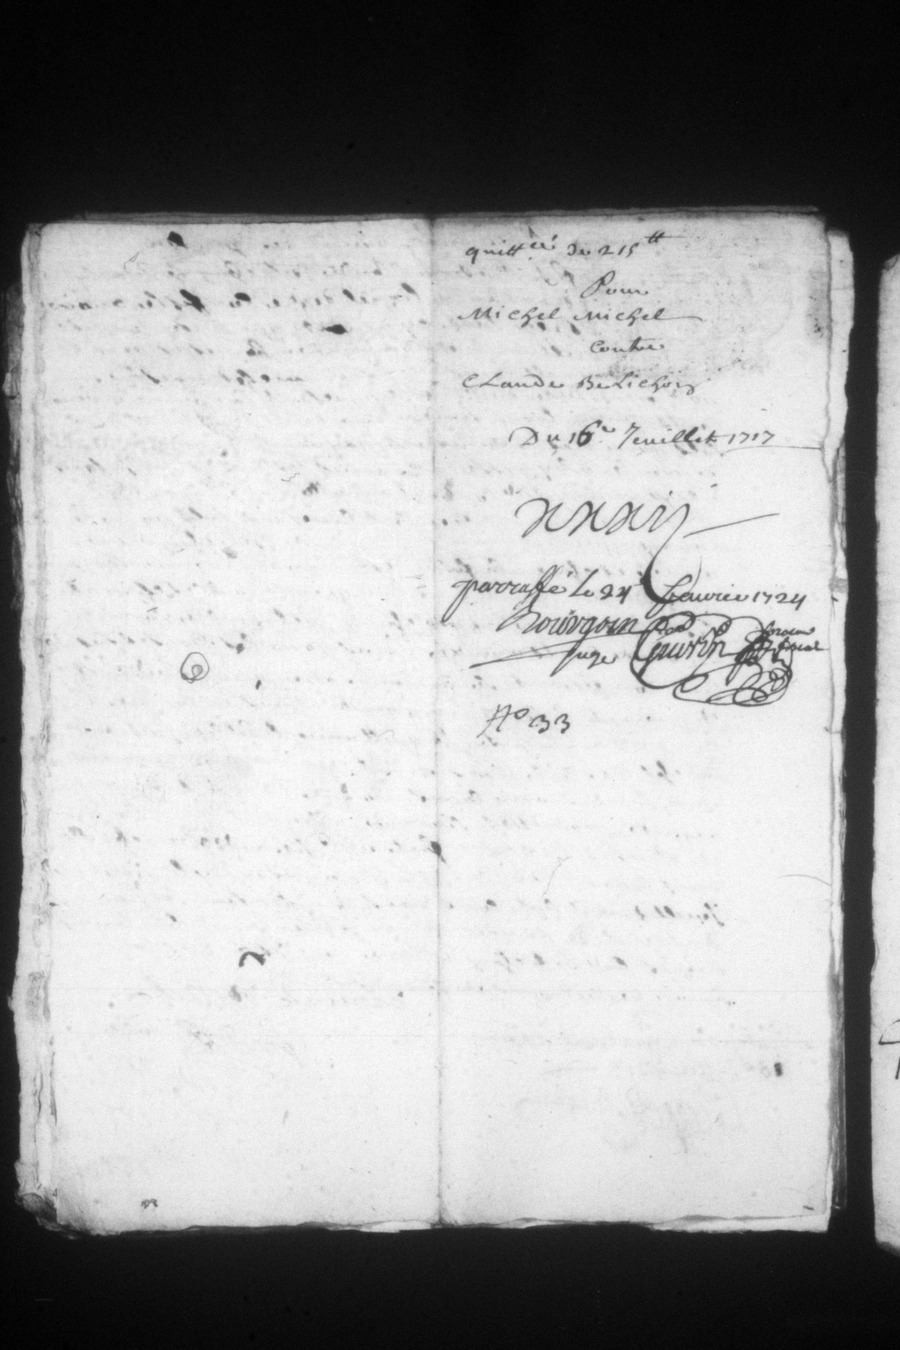 quitt.ce de 215tt
Pour
Michel Michel
Contre
Claude Belichon
Du 16e Jeuillet 1717
xxxiij
parraffé le 24 feaurier 1724
Bourgoin Guirin procureur
juge fiscal
No 33